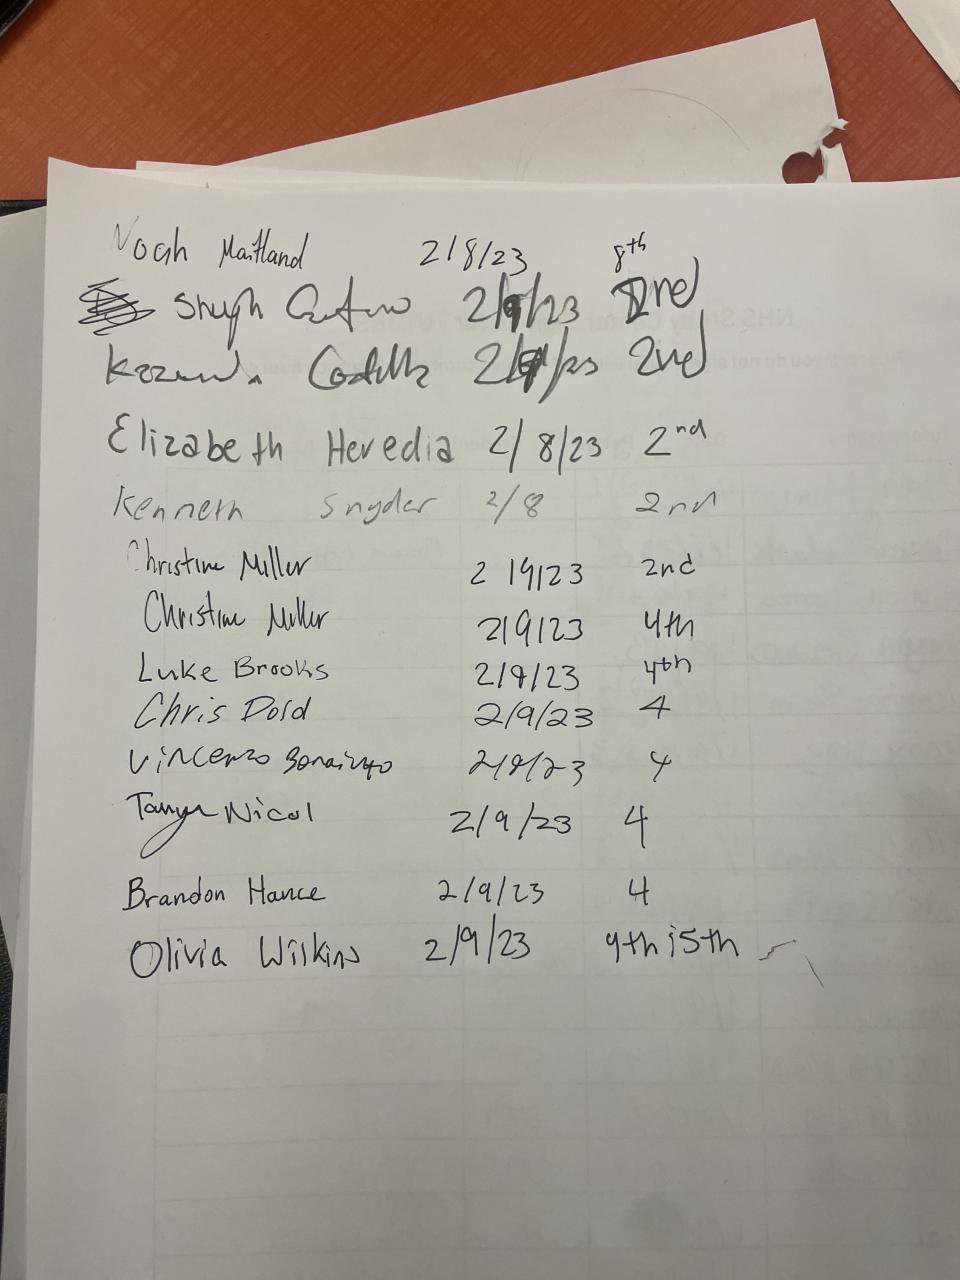 Noah Maitland 2/8/23 8th
2/9/23 2nd
2nd
Elizabeth Heredia 2/8/23 2nd
Kenneth Snyder 2/8 2nd
Christine Miller 2/9/23 2nd
Christine Miller 2/9/23 4th
Luke Brooks 2/9/23 4th
Chris Dold 2/9/23 4
Vincenzo 2/9/23 4
Tanya Nicol 2/9/23 4
Brandon Hance 2/9/23 4
Olivia Wilkins 2/9/23 4th i5th